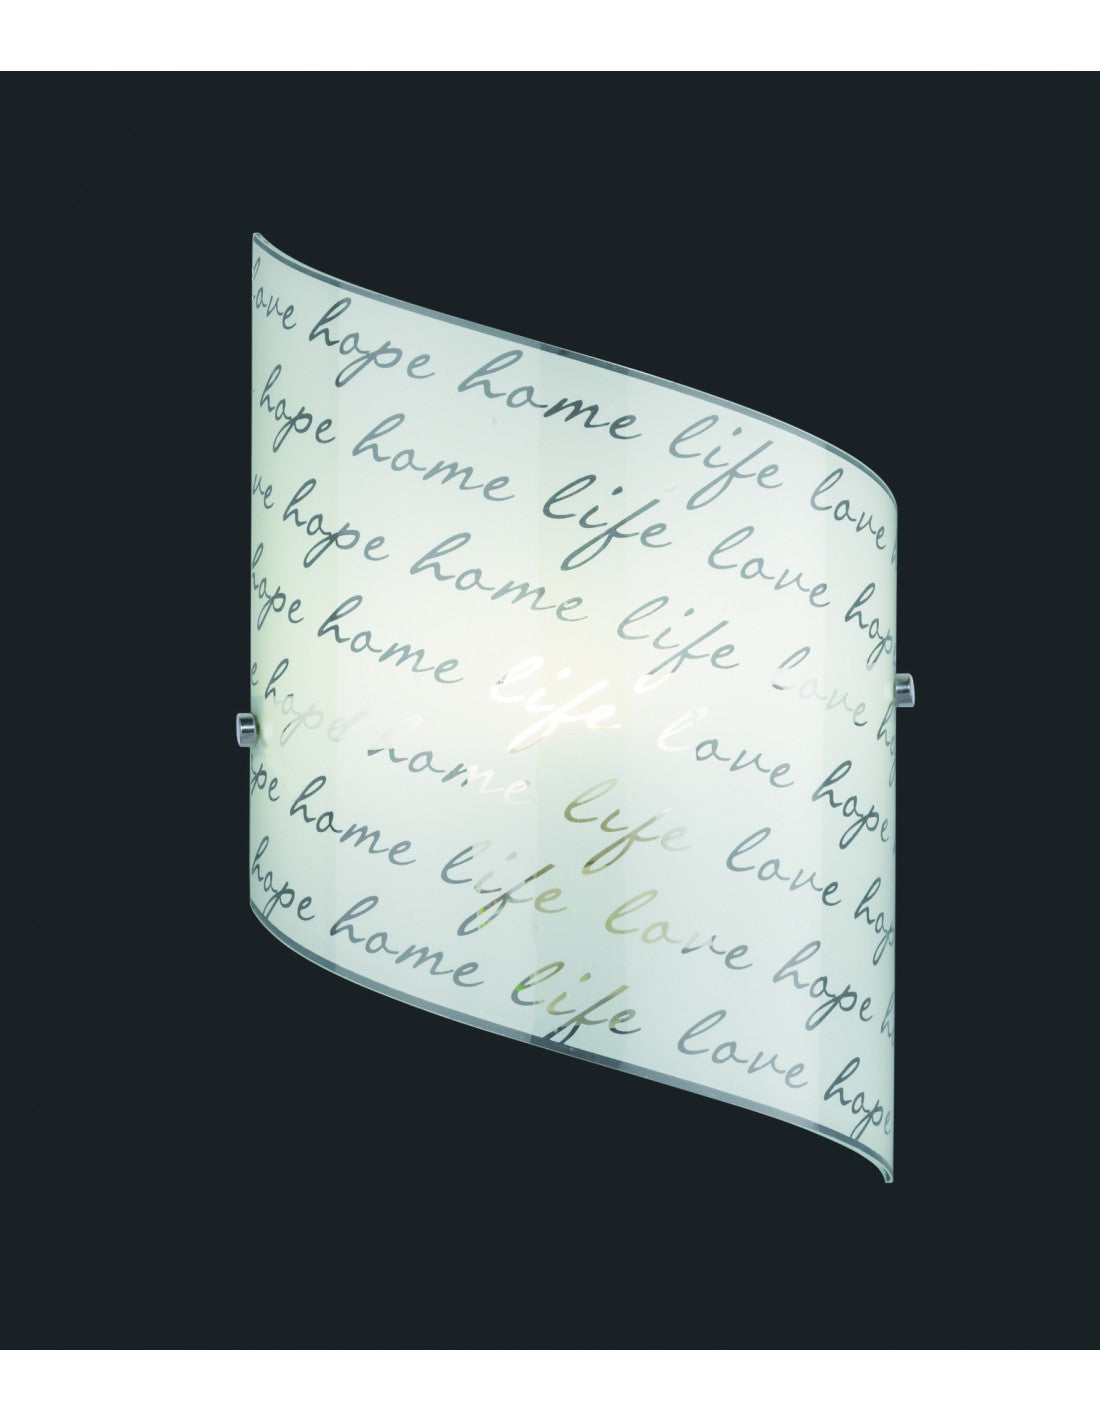 love hope home life love h
hope home life love hop
ve hope home life love h
hope home life love hope
e hope home life love hop
pe home life love hope h
hope home life love hope